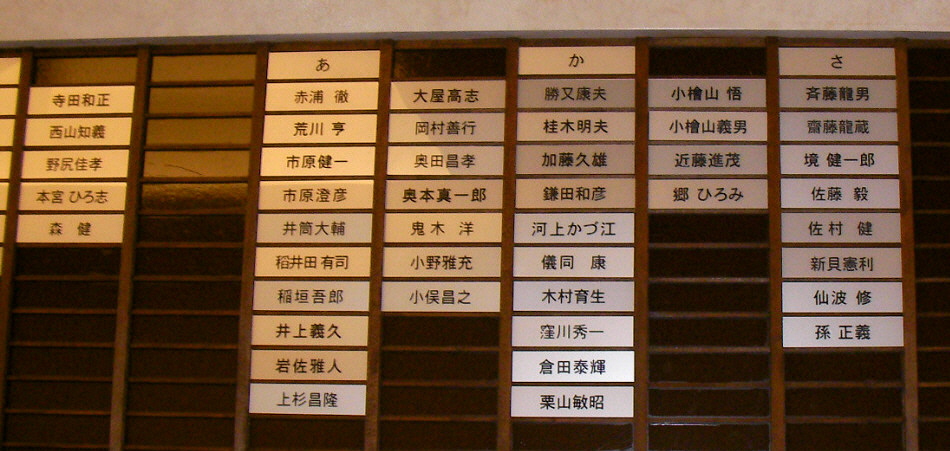 寺田和正
西山知義
野尻佳孝
本宮 ひろ志
森 健
あ
赤浦 徹
荒川 亨
市原健一
市原澄彦
井筒大輔
稻井田有司
稲垣吾郎
井上義久
岩佐雅人
上杉昌隆
大屋高志
岡村善行
奥田昌孝
奥本真一郎
鬼木 洋
小野雅充
小俣昌之
か
勝又康夫
桂木明夫
加藤久雄
鎌田和彦
河上かづ江
儀同 康
木村育生
窪川秀一
倉田泰輝
栗山敏昭
小檜山 悟
小檜山義男
近藤進茂
郷 ひろみ
さ
斉藤龍男
齋藤龍蔵
境 健一郎
佐藤 毅
佐村 健
新貝憲利
仙波 修
孫 正義